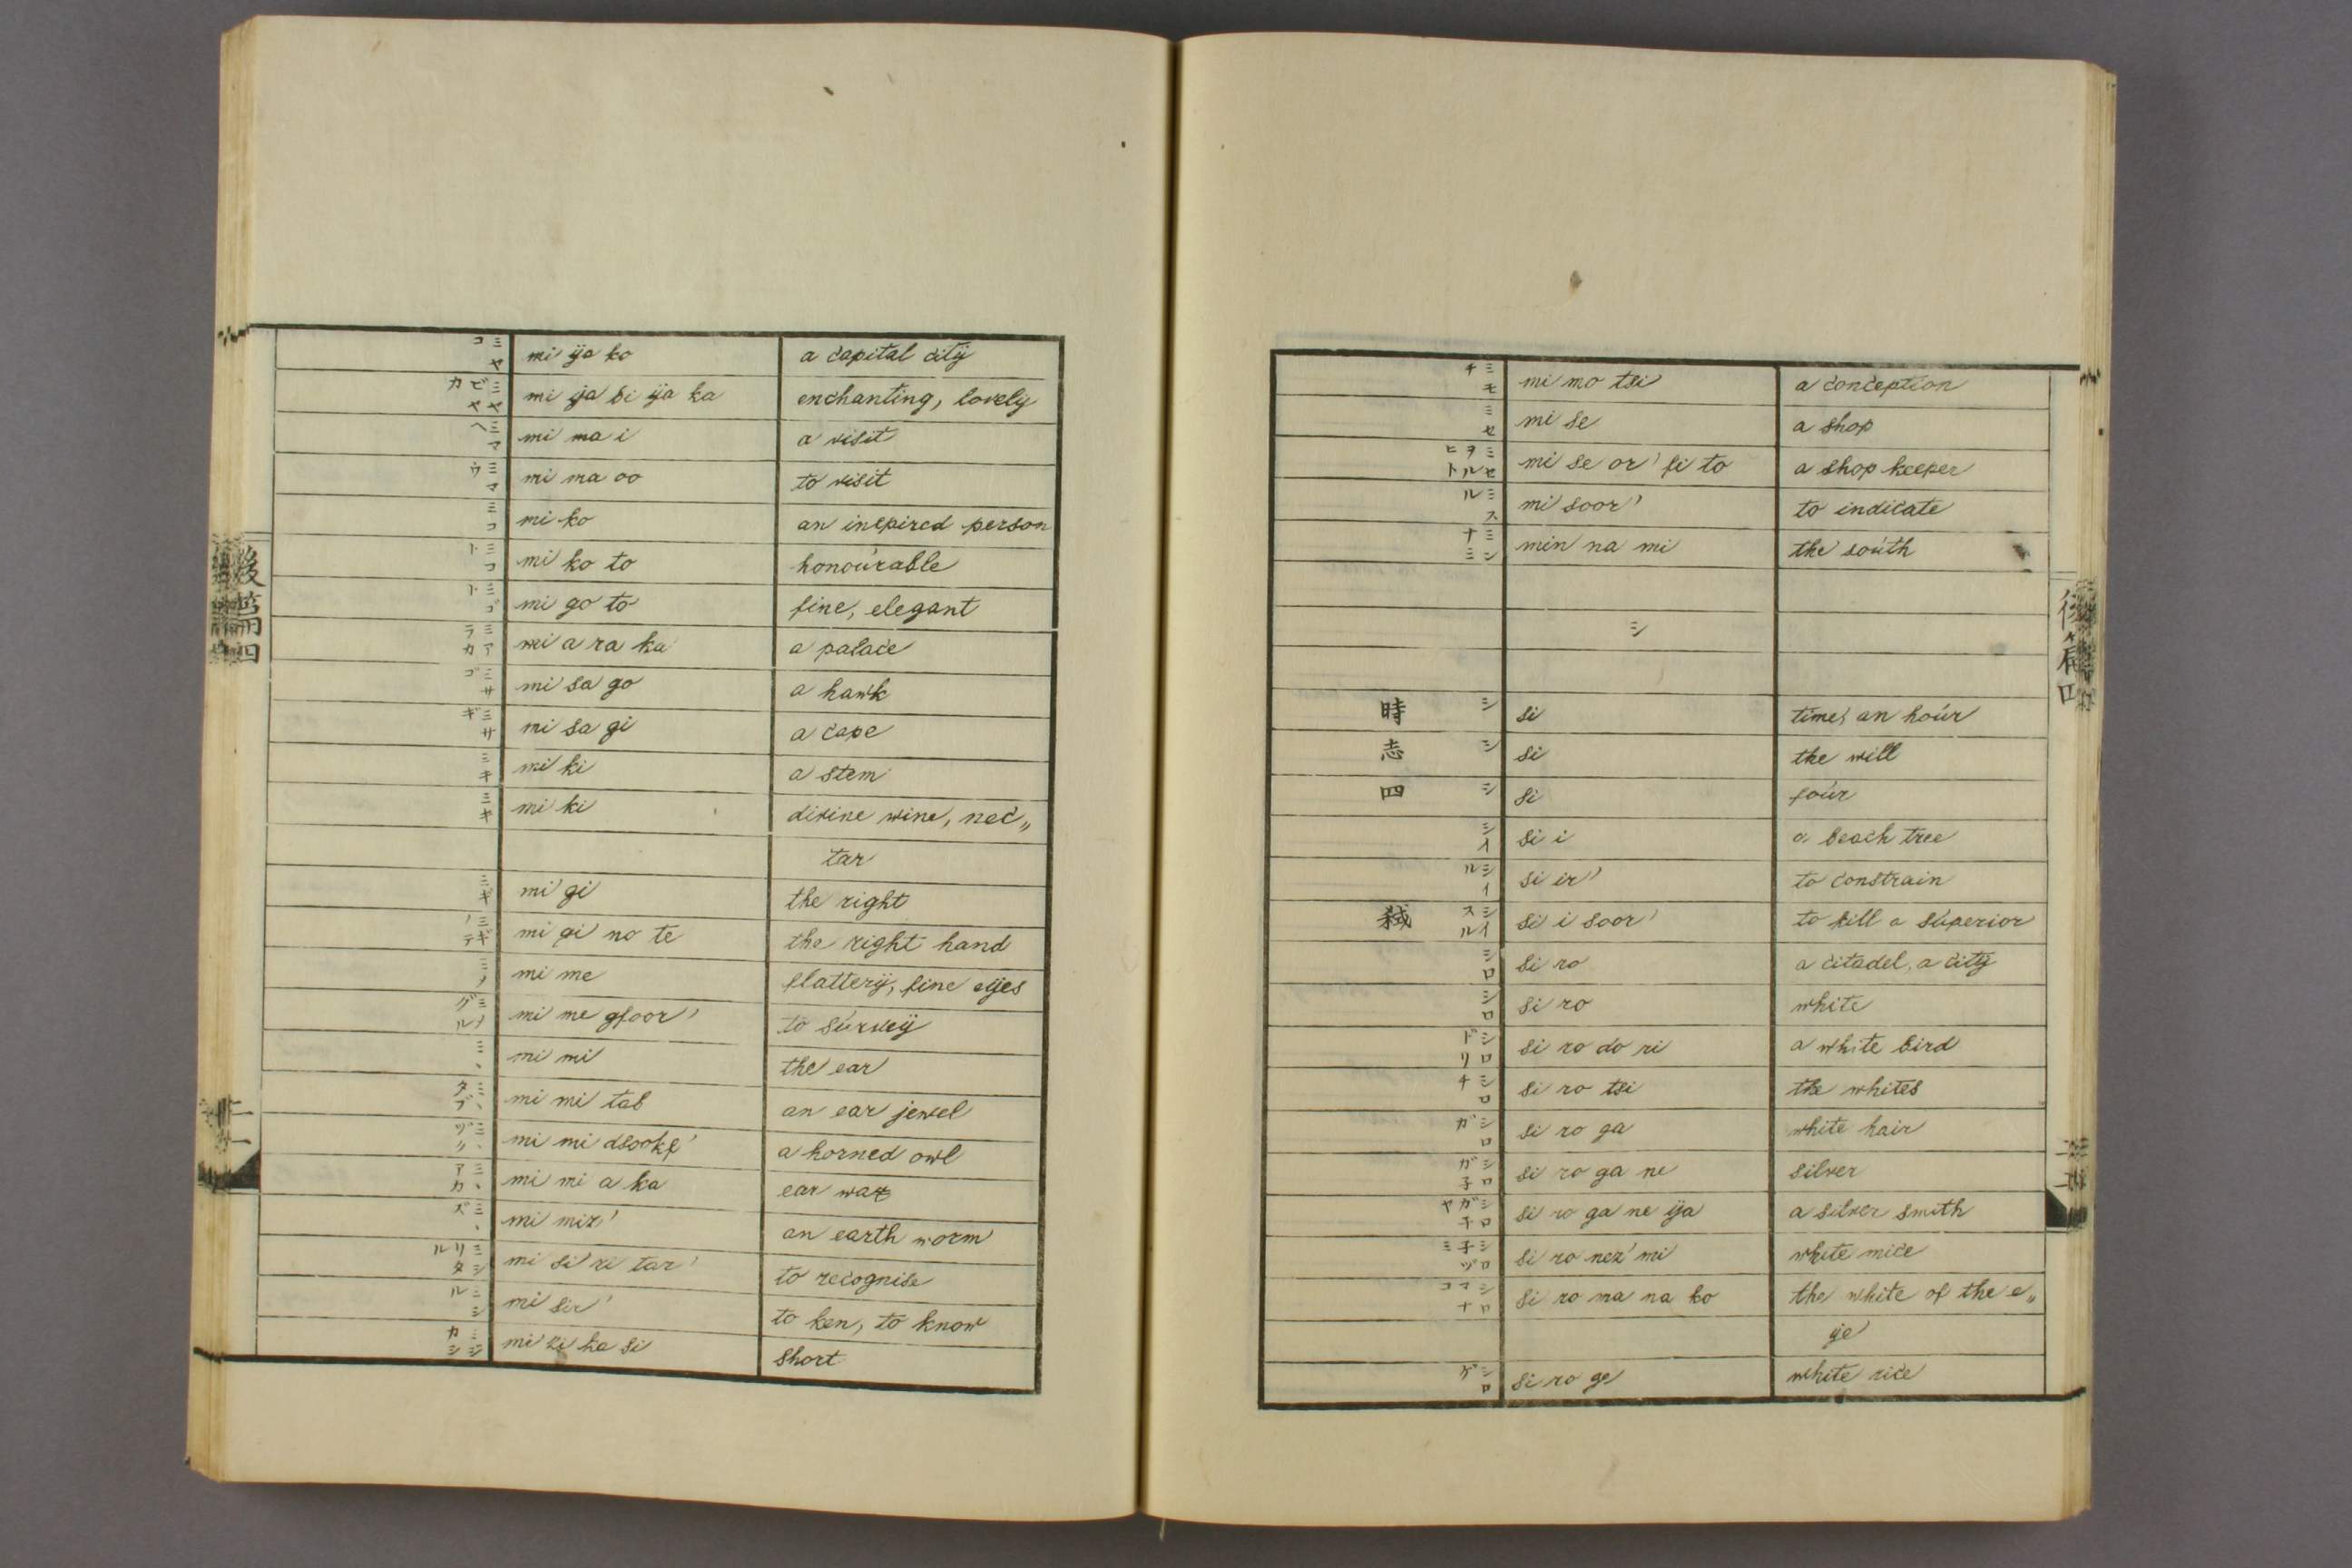 ミヤコ mi ÿa ko a capital citÿ
ミヤビヤカ mi ÿa bi ÿa ka enchanting, lovelÿ
ミマヘ mi ma i a visit
ミマウ mi ma oo to visit
ミコ mi ko an inspired person
ミコト mi ko to honourable
ミゴト mi go to fine, elegant
ミアラカ mi a ra ka a palace
ミサゴ mi sa go a hawk
ミサギ mi sa gi a cape
ミキ mi ki a stem
ミキ mi ki divine wine, nec„
tar
ミギ mi gi the right
ミギノテ mi gi no te the right hand
ミメ mi me flatterÿ, fine eÿes
ミメグル mi me gfoor' to surveÿ
ミヽ mi mi the ear
ミヽタブ mi mi tab an ear jewel
ミヽヅク mi mi dsookf' a horned owl
ミヽアカ mi mi a ka ear wax
ミヽズ mi miz' an earth worm
ミシリタル mi si ri tar' to recognise
ミシル mi sir' to ken, to know
ミジカシ mi zi ka si short
後篇四
二
ミモチ mi mo tsi a conception
ミセ mi se a shop
ミセヲルヒト mi se or' fi to a shop keeper
ミスル mi soor' to indicate
ミンナミ min na mi the south
シ
時 シ si time, an hour
志 シ si the will
四 シ si four
シイ si i a beach tree
シイル si ir' to constrain
弑 シイスル si i soor' to kill a superior
シロ si ro a citadel, a citÿ
シロ si ro white
シロドリ si ro do ri a white bird
シロチ si ro tsi the whites
シロガ si ro ga white hair
シロガ子 si ro ga ne silver
シロガ子ヤ si ro ga ne ÿa a silver smith
シロ子ヅミ si ro nez' mi white mice
シロマナコ si ro ma na ko the white of the e„
ÿe
シロゲ si ro ge white rice
後篇四